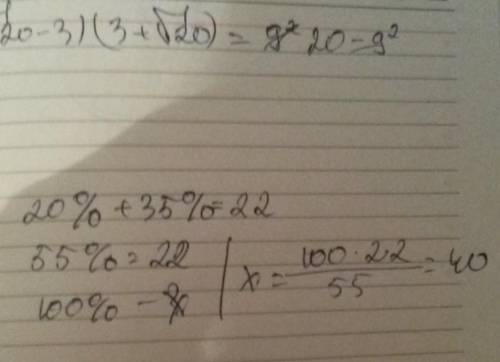 √20-3)(3+√20) = 9² 20-9²
20% + 35% = 22
55% = 22
100% - x
x = 100·22 / 55 = 40